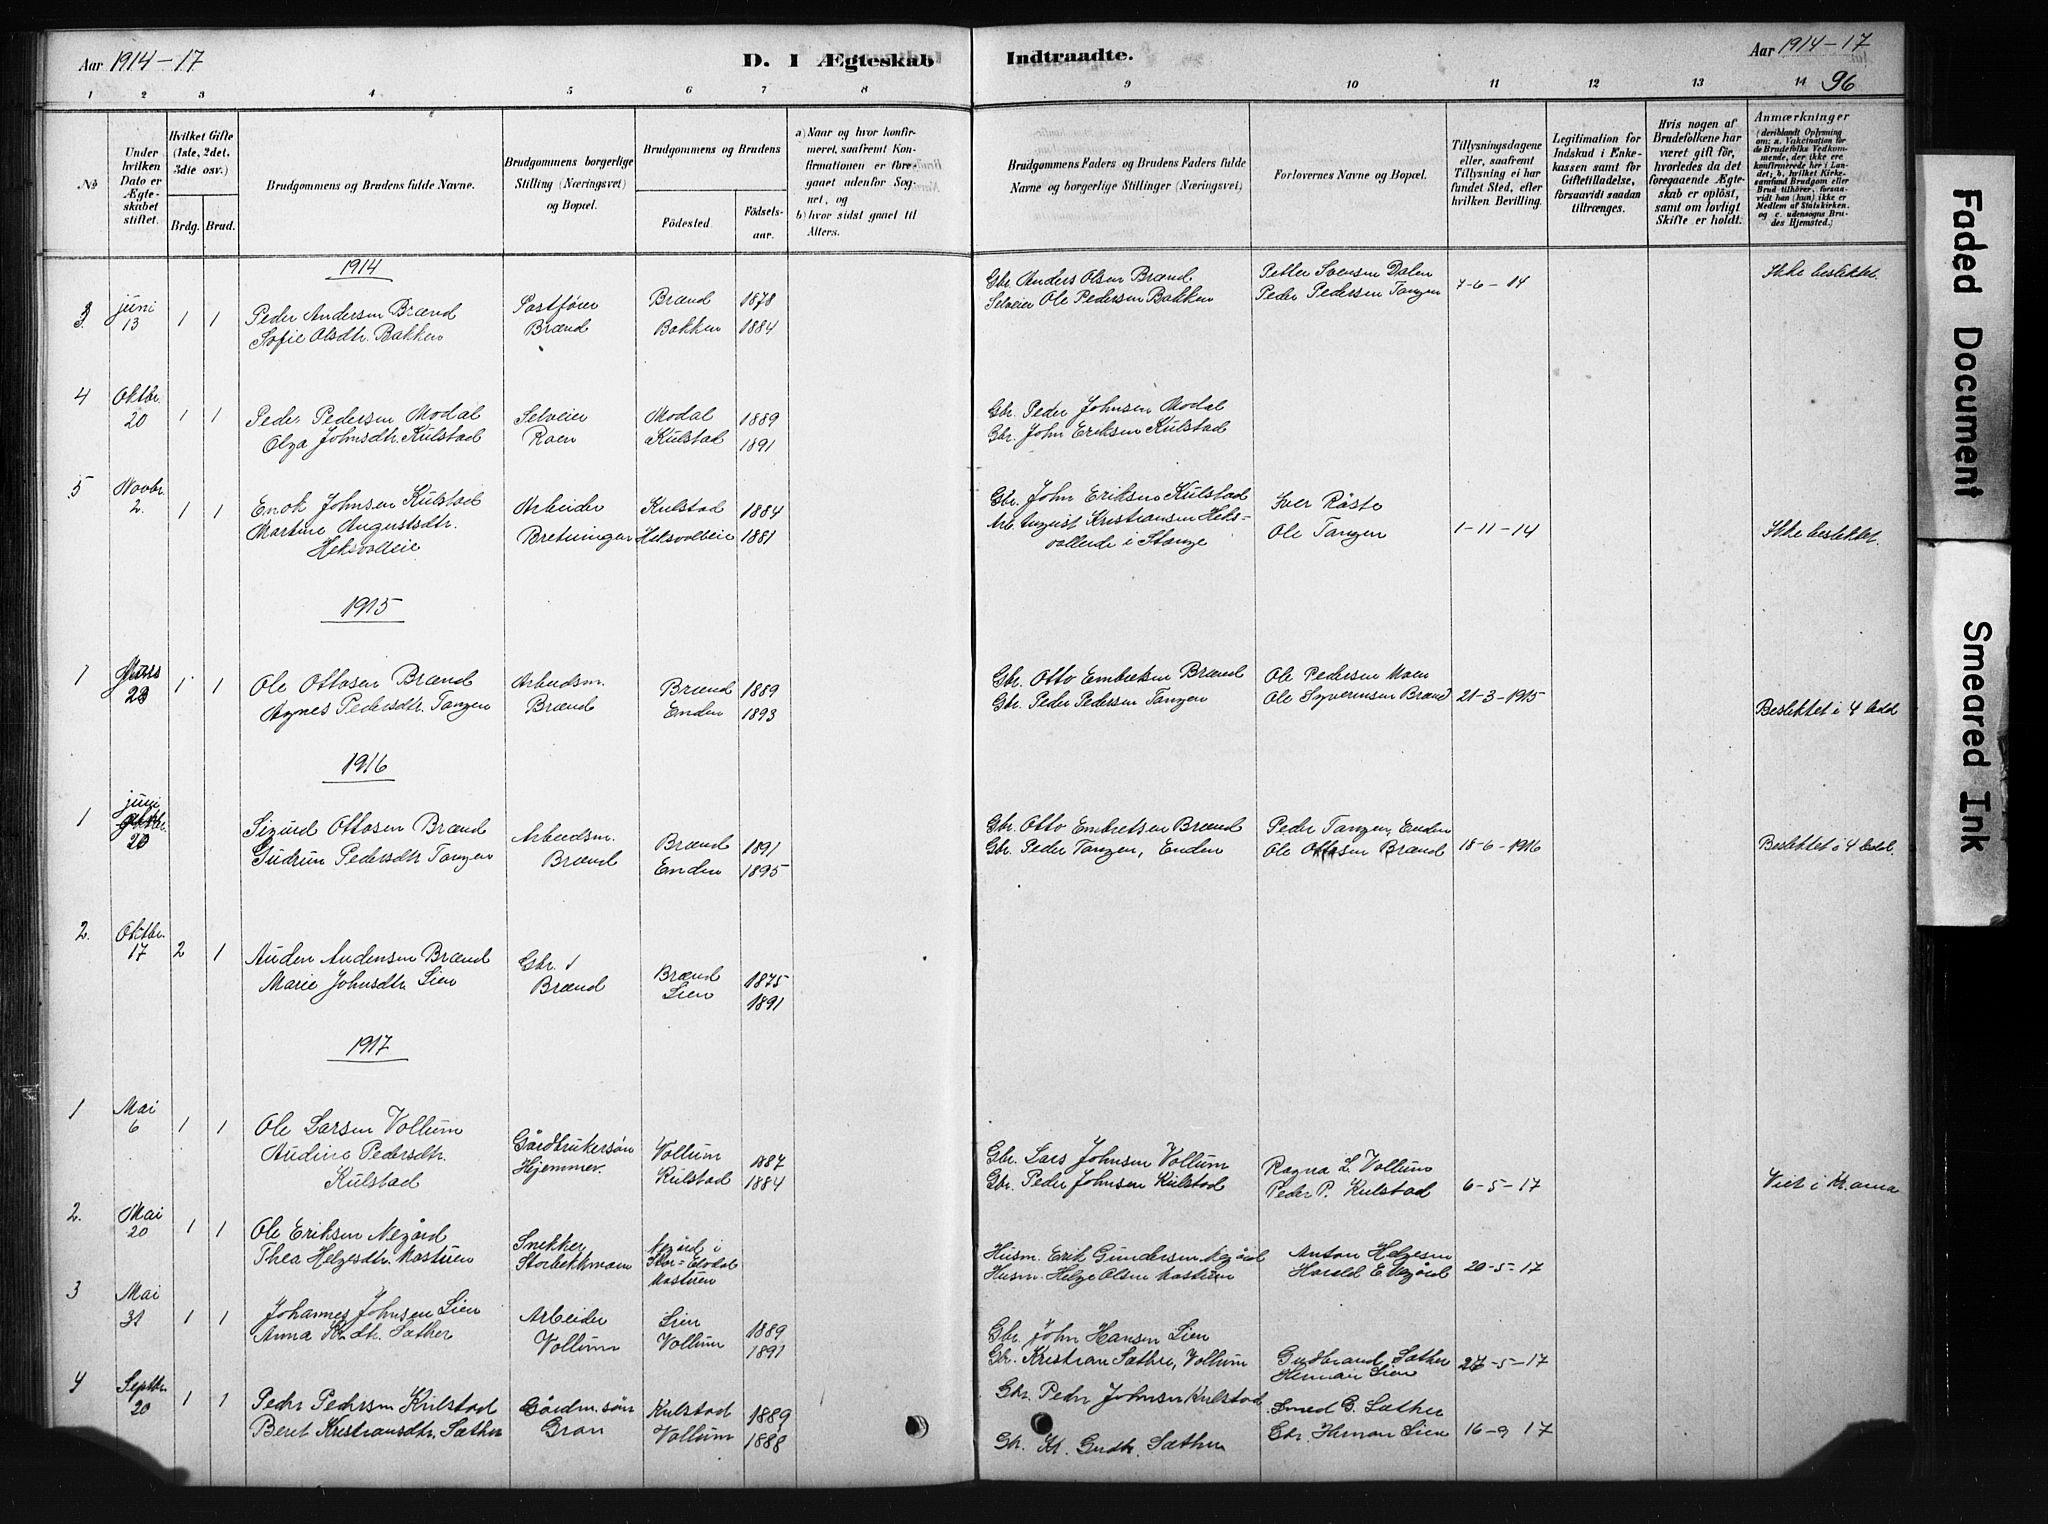 Aar 1914-17
D. I Ægteskab
Indtraadte.
Aar 1914-17
96
1 2 3 4 5 6 7 8 9 10 11 12 13 14
No
Under hvilken Dato er Ægteskabet stiftet.
Hvilket Gifte (1ste, 2det, 3die osv.)
Brdg. Brud.
Brudgommens og Brudens fulde Navne.
Brudgommens borgerlige Stilling (Næringsvei) og Bopæl.
Brudgommens og Brudens
Födested.
Födselsaar.
a) Naar og hvor konfirmeret, saafremt Konfirmationen er foregaaet udenfor Sognet, og
b) hvor sidst gaaet til Alters.
Brudgommens Faders og Brudens Faders fulde Navne og borgerlige Stillinger (Næringsvei)
Forlovernes Navne og Bopæl.
Tillysningsdagene eller, saafremt Tillysning ei har fundet Sted, efter hvilken Bevilling.
Legitimation for Indskud i Enkekassen samt for Giftetilladelse, forsaavidt saadan tiltrænges.
Hvis nogen af Brudefolkene har været gift för, hvorledes da det foregaaende Ægteskab er oplöst, samt om lovligt Skifte er holdt.
Anmærkninger
(deriblandt Oplysning om: a. Vakcination for de Brudefolks Vedkommende, der ikke ere konfirmerede her i Landet; b. hvilket Kirkesamfund Brudgom eller Brud tilhörer, forsaavidt han (hun) ikke er Medlem af Statskirken, og c. udensogns Brudes Hjemsted.)
1914
3. juni 13 1 1 Peder Andersen Brænd Postfører Brænd 1878 Gbr. Anders Olsen Brænd Petter Svensen Dalen 7-6-14 Ikke beslektet
Sofie Olsdtr. Bakken Brænd Bakken 1884 Selveier Ole Pedersen Bakken Peder Pedersen Tangen
4 Oktbr. 20 1 1 Peder Pedersen Modal Selveier Modal 1889 Gbr. Peder Johnsen Modal
Olga Johnsdtr. Kulstad Roen Kulstad 1891 Gbr. John Eriksen Kulstad
5 Novbr. 2. 1 1 Enok Johnsen Kulstad Arbeider Kulstad 1884 Gbr. John Eriksen Kulstad Iver Råste
Martine Augustsdtr. Bretningen Heksvolleie 1881 Arb. August Kristiansen Heks- Ole Tangen 1-11-14 Ikke beslektet.
Heksvolleie volleie i Stange
1915
1 28 1 1 Ole Ottosen Brænd Arbeidsm. Brænd 1889 Gbr. Otto Embretsen Brænd Ole Pedersen Moen
Agnes Pedersdtr. Tangen Brænd Enden 1893 Gbr. Peder Pedersen Tangen Ole Syversen Brænd 21-3-1915 Beslektet i 4 ledd
1916
1 juni 20 Sigurd Ottosen Brænd Arbeidsm. Brænd 1891 Gbr. Otto Embretsen Brænd Peder Tangen, Enden 18-6-1916 Beslektet i 4 ledd.
Gudrun Pedersdtr Tangen Brænd Enden 1895 Gbr. Peder Tangen, Enden Ole Ottosen Brænd
2. Oktbr. 17 2 1 Auden Audensen Brænd Gbr. Brænd 1875
Marie Johnsdtr. Lien Brænd Lien 1891
1917
1 Mai 6 1 1 Ole Larsen Vollum Gårdbrukersøn Vollum 1887 Gbr. Lars Johnsen Vollum Ragna L. Vollum
Audine Pedersdtr. Kulstad Hjemmev. Kulstad 1884 Gbr. Peder Johnsen Kulstad Peder P. Kulstad 6-5-17 Viet i Kr.ania
2. Mai 20 1 1 Ole Eriksen Negård Snekker Negård i Stor-Elvdal Husm. Erik Gundersen Negård Anton Helgesen
Thea Helgesdtr. Mastuen Storbekkmoen Mastuen Husm. Helge Olsen Mastuen Harald E. Negård 20-5-17
3 Mai 31 1 1 Johannes Johnsen Lien Arbeider Lien 1889 Gbr. John Hansen Lien
Anna Kr.dtr. Sæther Vollum Vollum 1891 Gbr. Kristian Sæthre, Vollum Gudbrand Sæther 27-5-17
Herman Lien
4 Septbr. 20 1 1 Peder Pedersen Kulstad Gårdm.søn Kulstad 1889 Gbr. Peder Johnsen Kulstad Smed G. Sæther
Beret Kristiansdtr. Sæther Gran Vollum 1888 Gbr. Kr. Gudbr. Sæther Gbr. Herman Lien 16-9-17
Faded Document
Smeared Ink